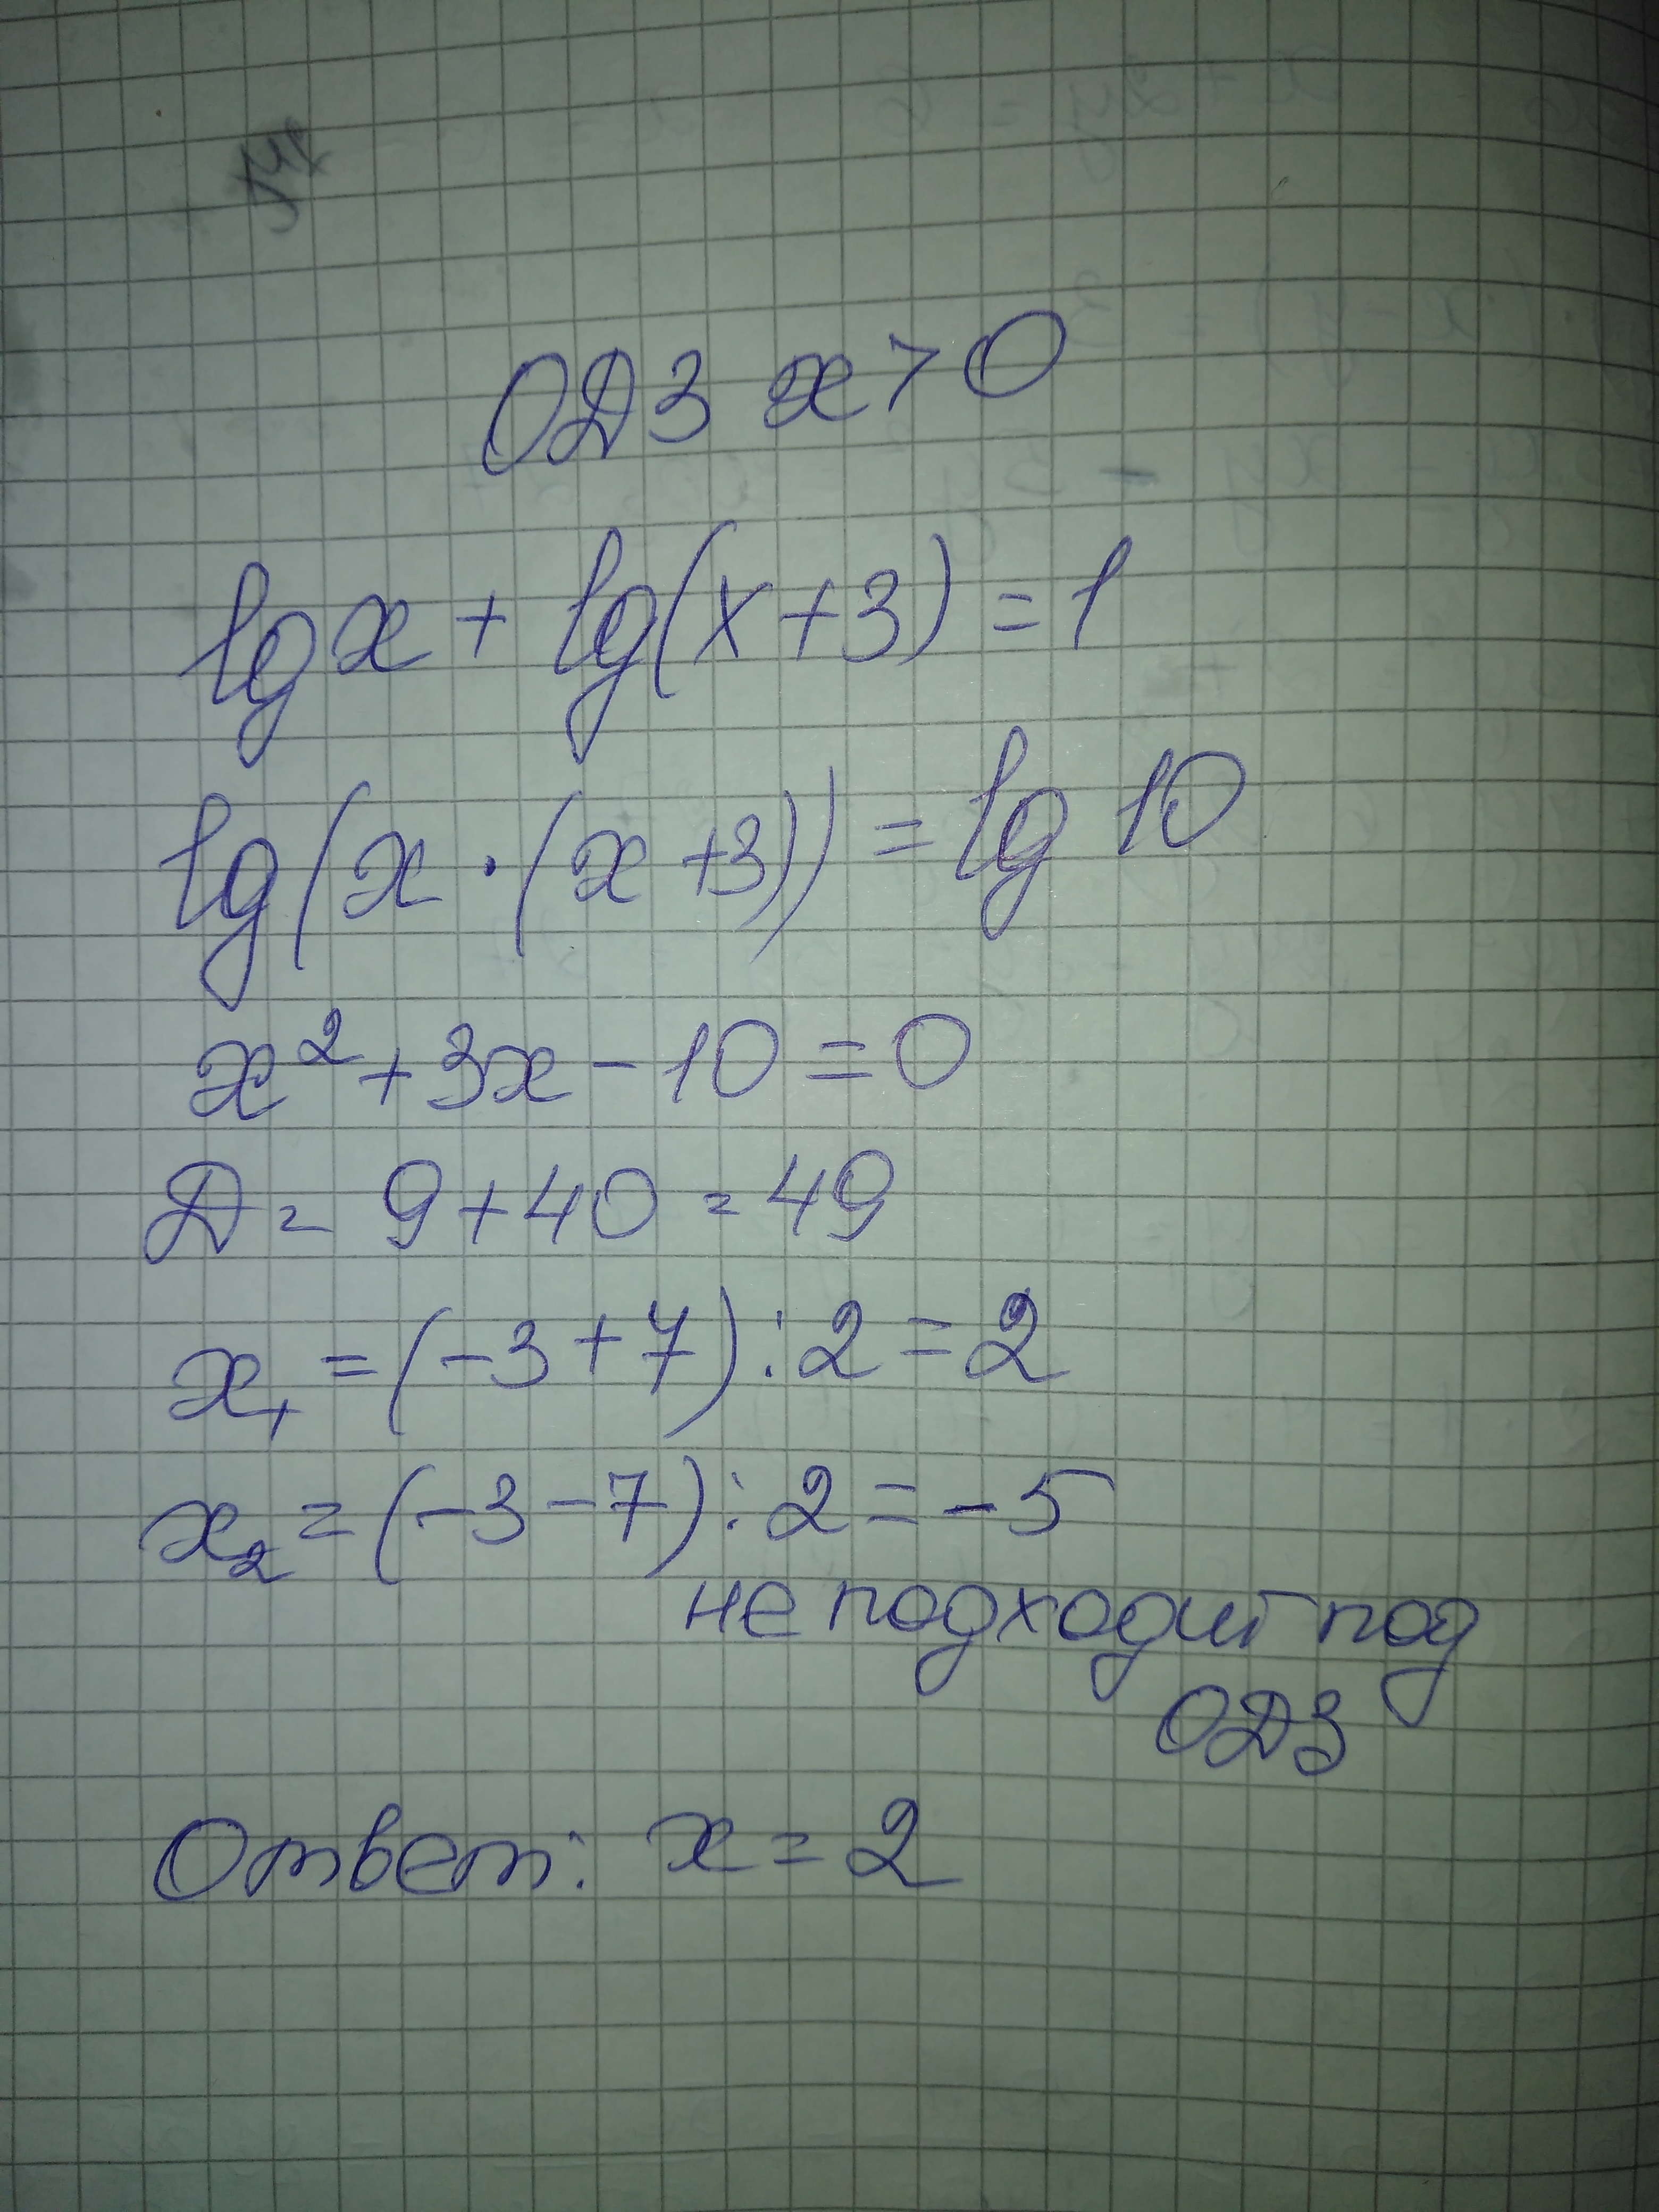 ОДЗ x>0
lg x + lg(x+3) = 1
lg(x · (x+3)) = lg 10
x² + 3x - 10 = 0
Д = 9 + 40 = 49
x₁ = (-3 + 7) : 2 = 2
x₂ = (-3 - 7) : 2 = -5
не подходит под
ОДЗ
Ответ: x = 2